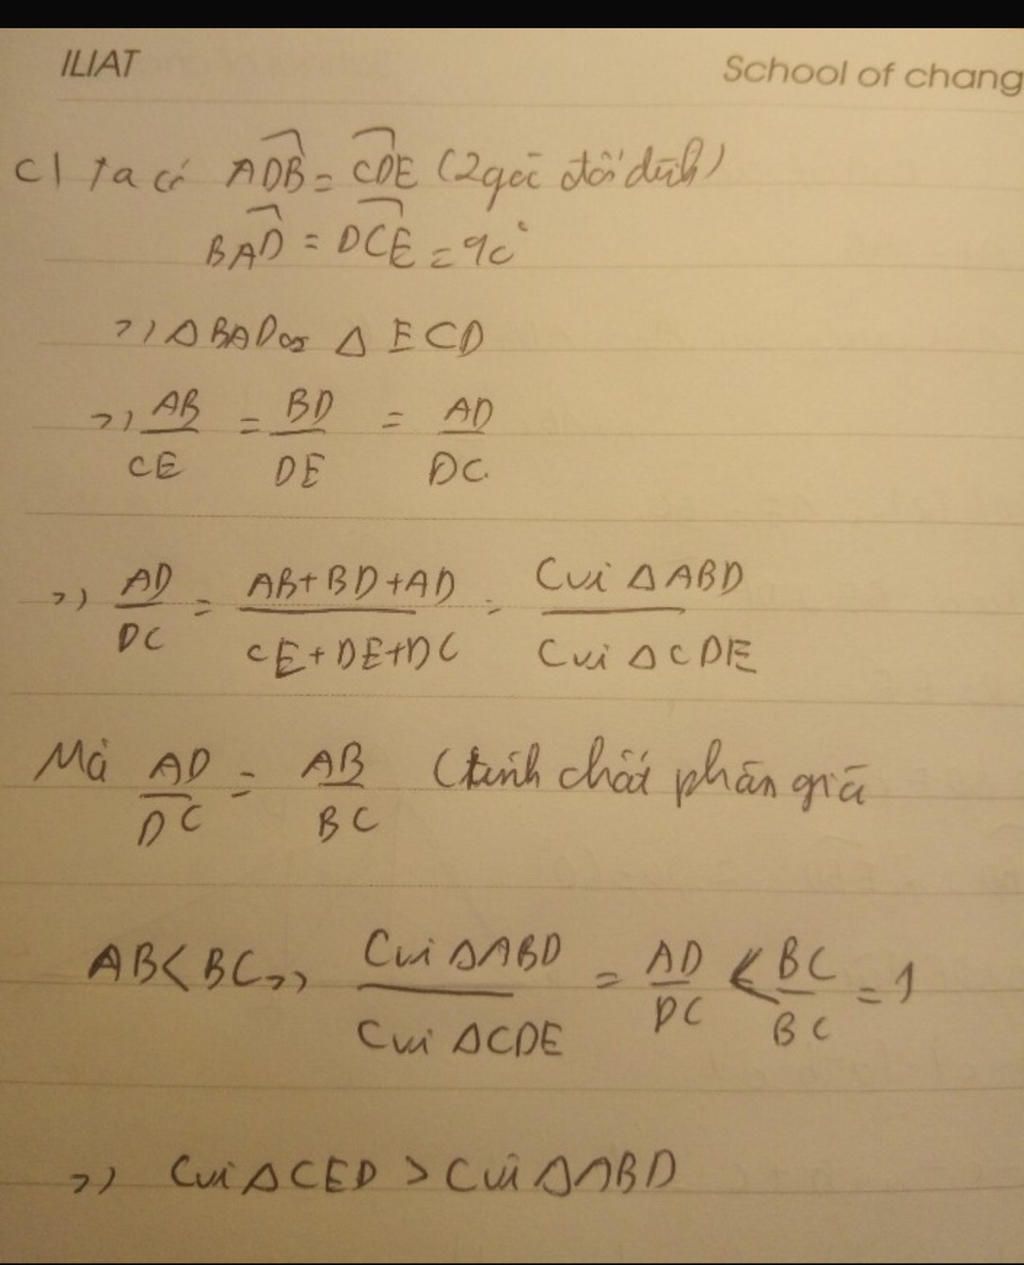 ILIAT School of chang
c) Ta có ADB = CDE (2 góc đối đỉnh)
BAD = DCE = 90°
=> Δ BAD ∽ Δ ECD
=> AB/CE = BD/DE = AD/DC
=> AD/DC = AB+BD+AD/CE+DE+DC = Cvi Δ ABD/Cvi Δ CDE
Mà AD/DC = AB/BC (tính chất phân giá
AB < BC => Cvi Δ ABD/Cvi Δ CDE = AD/DC < BC/BC = 1
=> Cvi Δ CED > Cvi Δ ABD